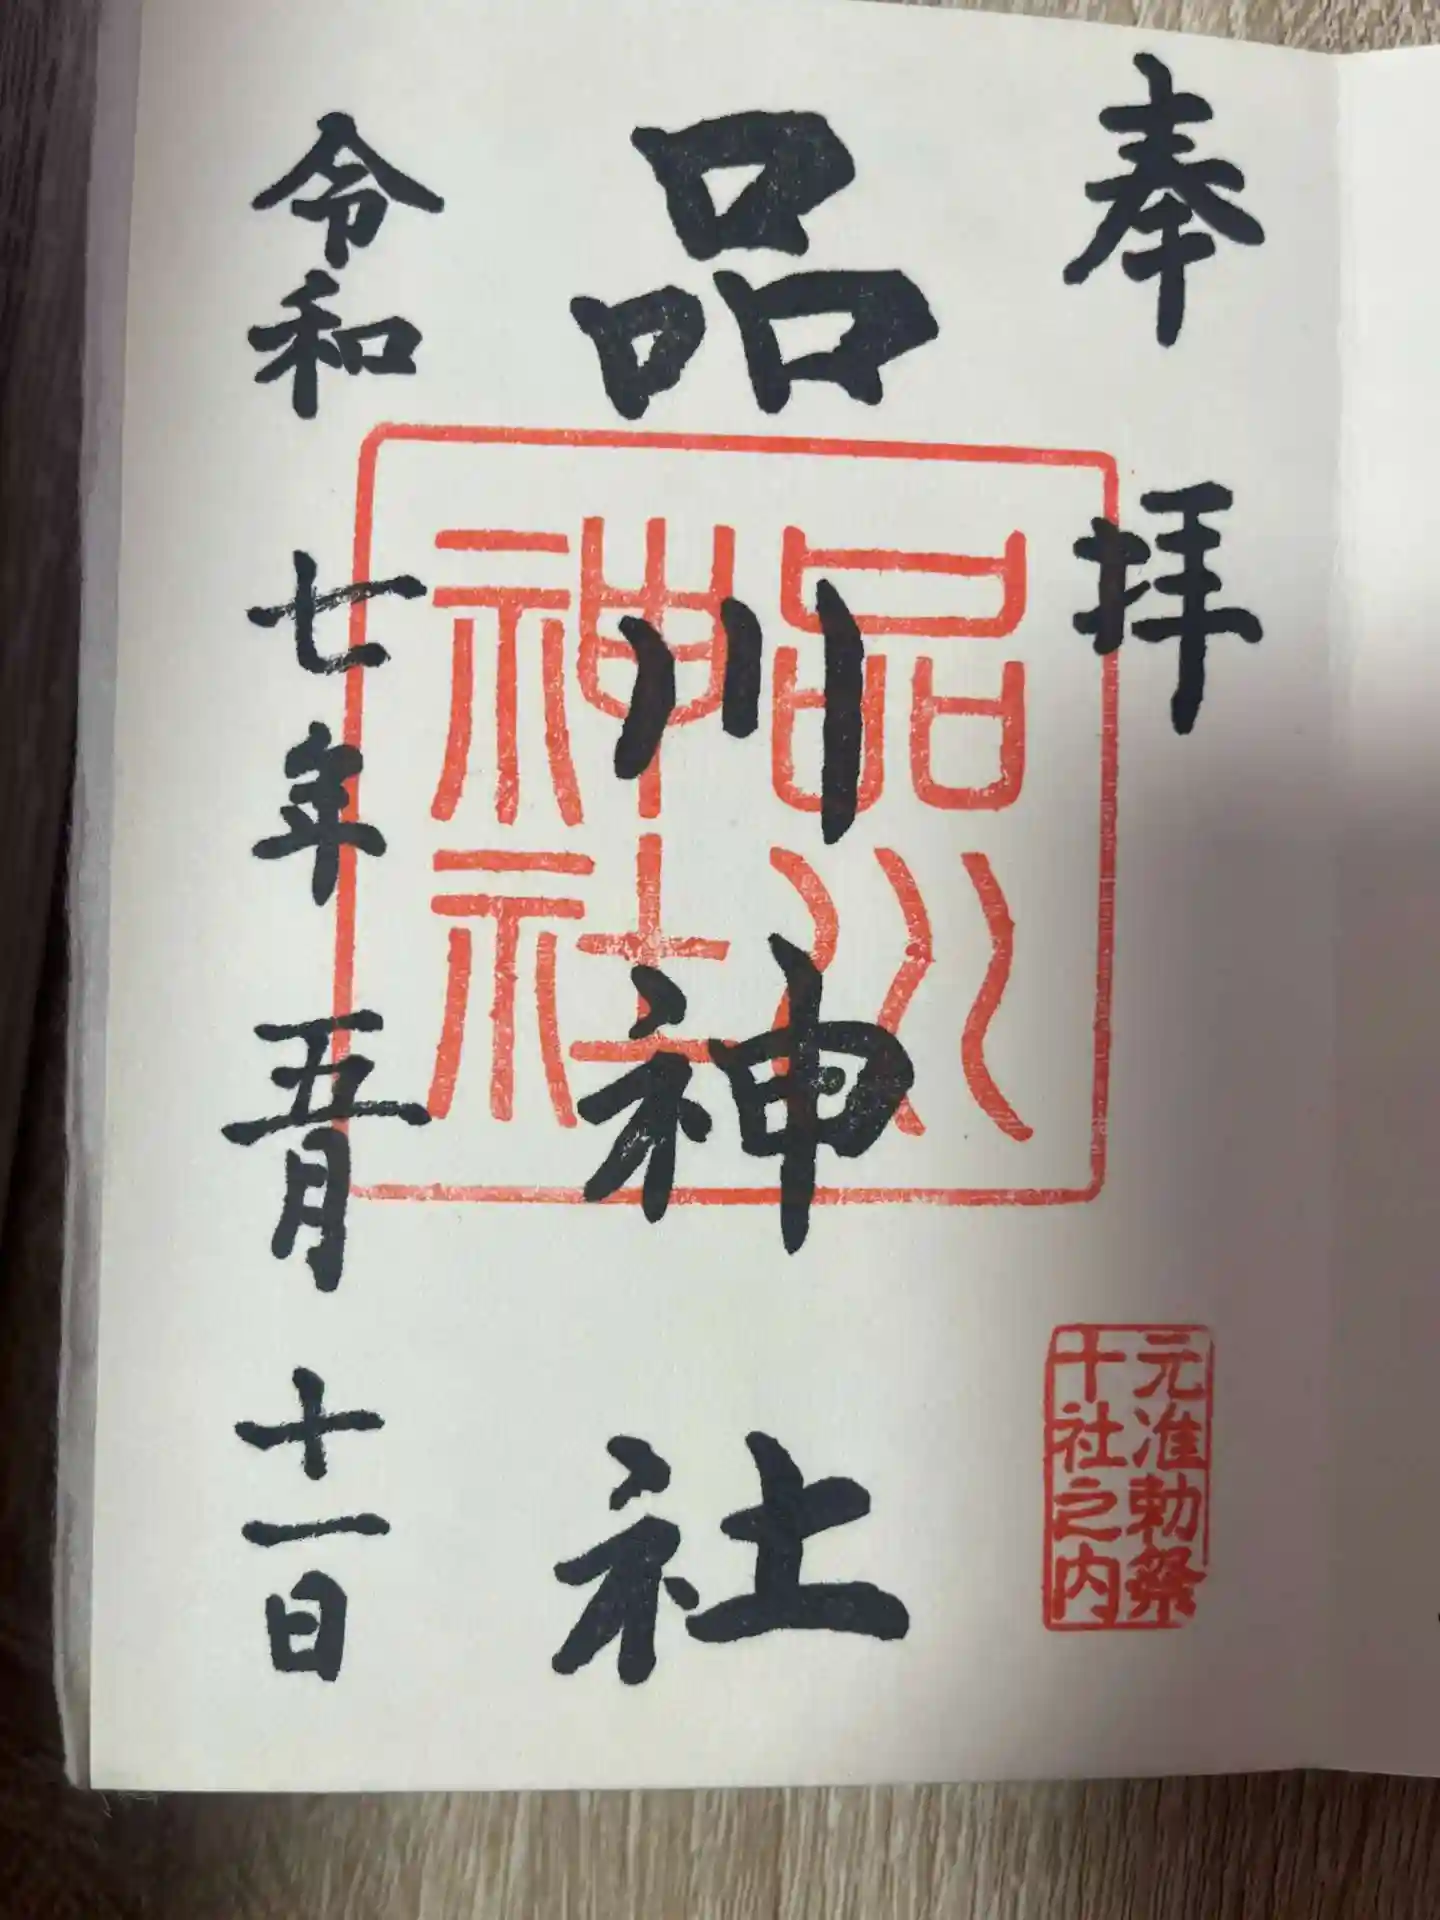 奉拝
元准勅祭
十社之内
品川神社
品川
神社
令和七年五月十一日